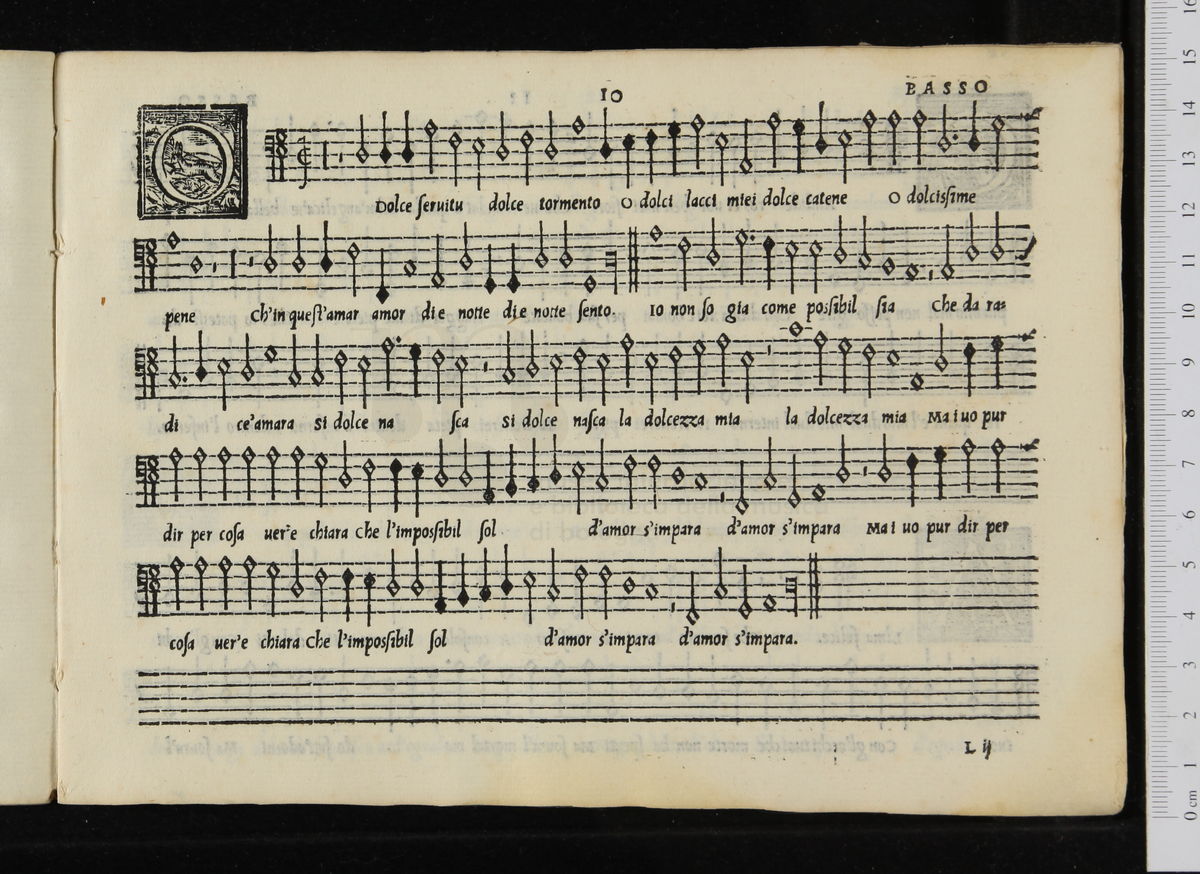 BASSO
10
O Dolce seruitu dolce tormento O dolci lacci miei dolce catene O dolcissime
pene ch'in quest'amar amor di e notte di e notte sento. Io non so gia come possibil sia che da ra=
di ce'amara si dolce na sca si dolce nasca la dolcezza mia la dolcezza mia Mai uo pur
dir per cosa uer'e chiara che l'impossibil sol d'amor s'impara d'amor s'impara Mai uo pur dir per
cosa uer'e chiara che l'impossibil sol d'amor s'impara d'amor s'impara.
L ij
0 cm 1 2 3 4 5 6 7 8 9 10 11 12 13 14 15 16